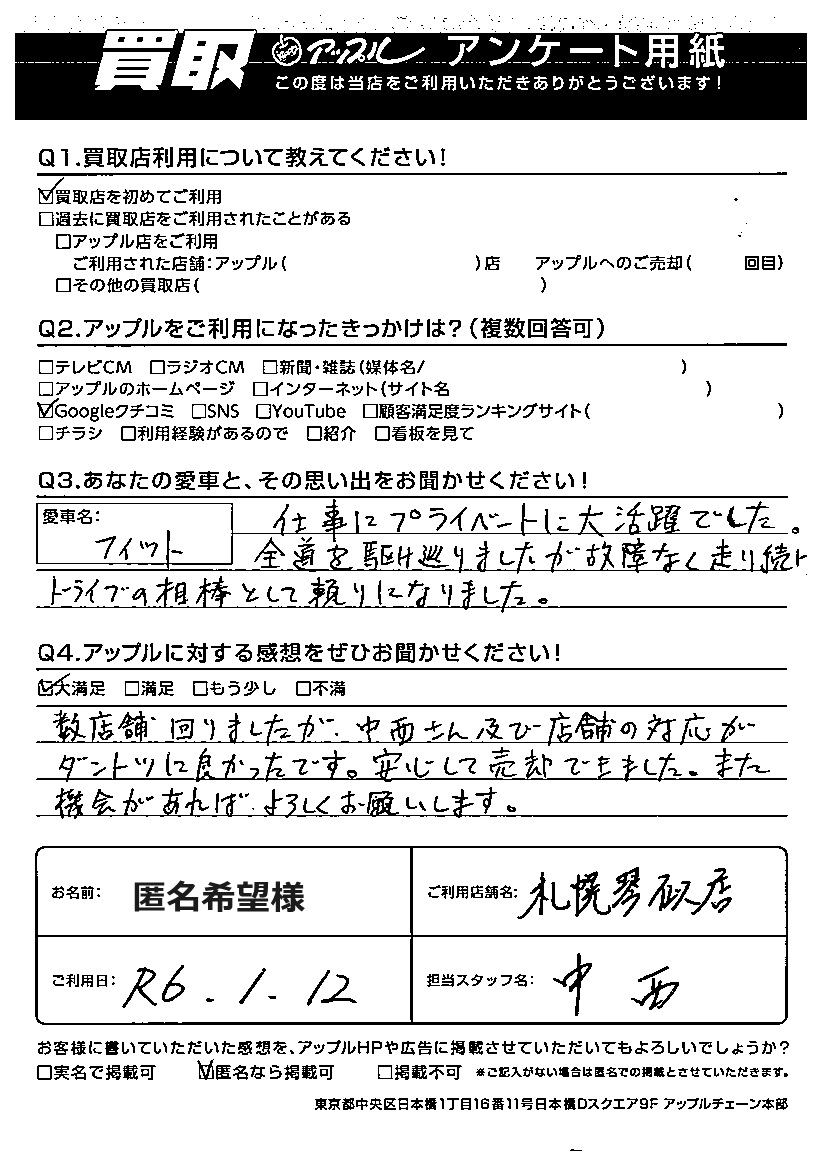 買取 アップル アンケート用紙
この度は当店をご利用いただきありがとうございます!
Q1.買取店利用について教えてください!
☑買取店を初めてご利用
□過去に買取店をご利用されたことがある
□アップル店をご利用
ご利用された店舗:アップル( )店 アップルへのご売却( 回目)
□その他の買取店( )
Q2.アップルをご利用になったきっかけは?(複数回答可)
□テレビCM □ラジオCM □新聞・雑誌(媒体名/ )
□アップルのホームページ □インターネット(サイト名 )
☑Googleクチコミ □SNS □YouTube □顧客満足度ランキングサイト( )
□チラシ □利用経験があるので □紹介 □看板を見て
Q3.あなたの愛車と、その思い出をお聞かせください!
愛車名: 仕事にプライベートに大活躍でした。
フィット 全道を駆け巡りましたが故障なく走り続け
ドライブの相棒として頼りになりました。
Q4.アップルに対する感想をぜひお聞かせください!
☑大満足 □満足 □もう少し □不満
数店舗回りましたが、中西さん及び店舗の対応が
ダントツに良かったです。安心して売却できました。また
機会があればよろしくお願いします。
お名前: 匿名希望様 ご利用店舗名: 札幌琴似店
ご利用日: R6.1.12 担当スタッフ名: 中西
お客様に書いていただいた感想を、アップルHPや広告に掲載させていただいてもよろしいでしょうか?
□実名で掲載可 ☑匿名なら掲載可 □掲載不可 ※ご記入がない場合は匿名での掲載とさせていただきます。
東京都中央区日本橋1丁目16番11号日本橋Dスクエア9F アップルチェーン本部